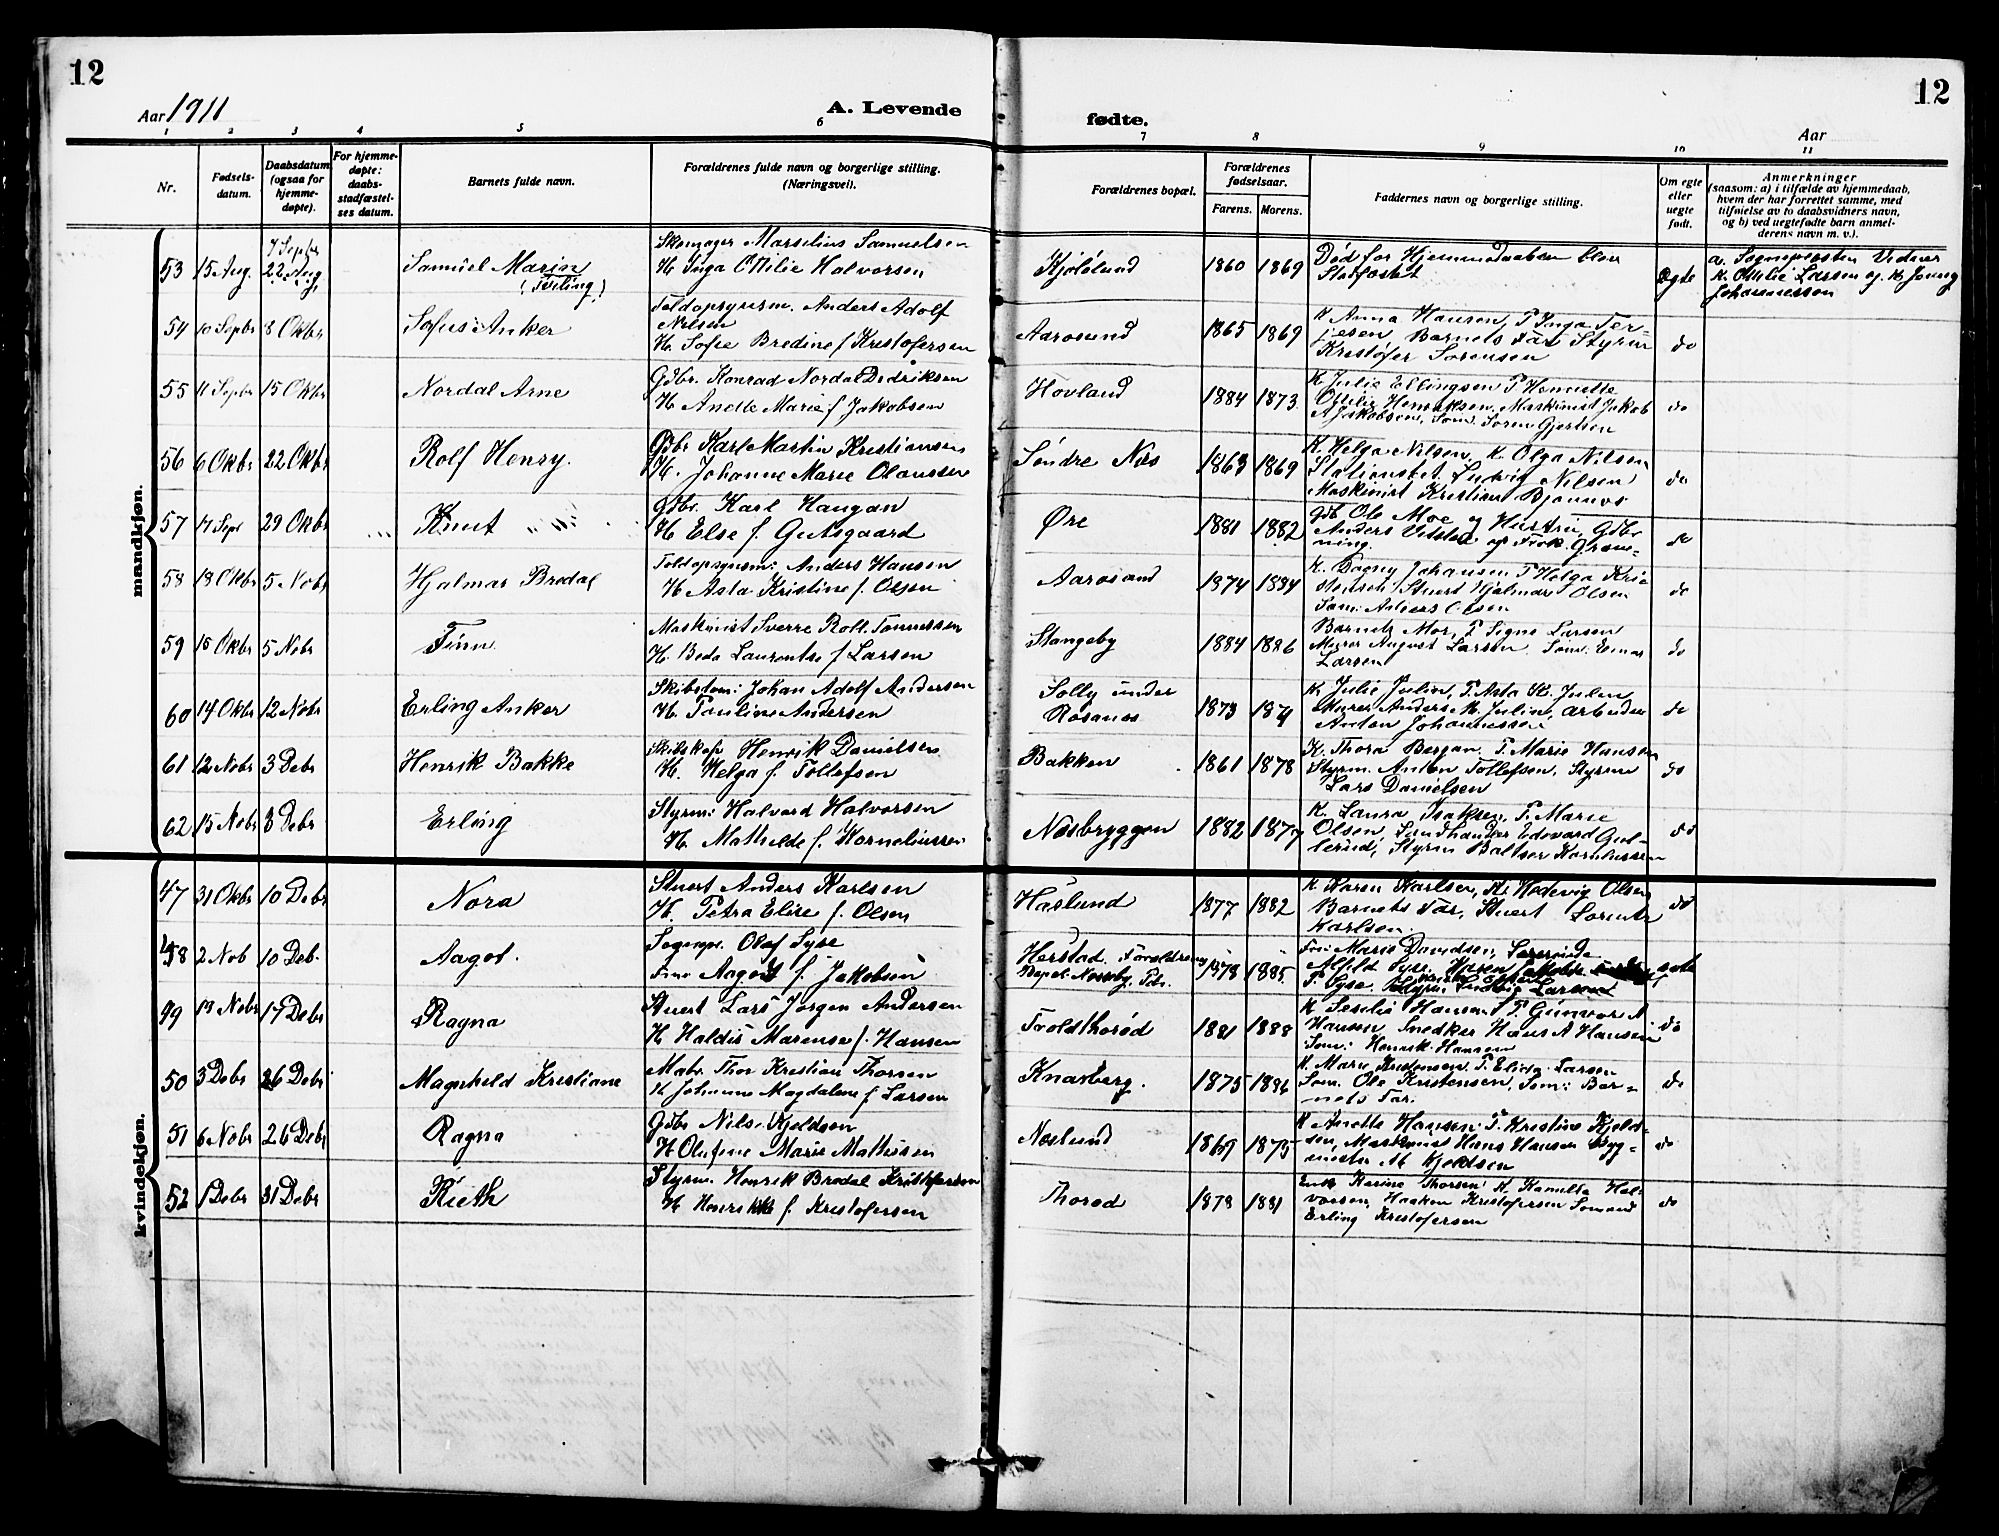 12
12
Aar 1911
A. Levende
fødte.
Aar
1 2 3 4 5 6 7 8 9 10 11
Nr.
Fødsels-
datum.
Daabsdatum
(ogsaa for
hjemme-
døpte).
For hjemme-
døpte:
daabs-
stadfæstel-
ses datum.
Barnets fulde navn.
Forældrenes fulde navn og borgerlige stilling.
(Næringsvei).
Forældrenes bopæl.
Forældrenes
fødselsaar.
Farens. Morens.
Faddernes navn og borgerlige stilling.
Om egte
eller
uegte
født.
Anmerkninger
(saasom: a) i tilfælde av hjemmedaab,
hvem der har forrettet samme, med
tilføielse av to daabsvidners navn,
og b) ved uegtefødte barn anmel-
derens navn m. v.).
mandkjøn.
53 15 Aug. 7 Sepbr 22 Aug
Samuel Marin
(Tvilling)
Skomager Marselius Samuelsen
H. Inga Ottilie Halvorsen
Kjølølund 1860 1869
Død før Hjemmedaaben blev
Stafæstet
Ægte
a. Sognepresten Vidner
K. Ottilie Larsen og K. Jenny
Johannessen
54 10 Sepbr 8 Okbr
Sofus Anker
Toldopsynsm. Anders Adolf
Nilsen
H. Sofie Bredine f Kristofersen
Aarosund 1865 1869
K Anna Hansen, P Inga Ter-
jesen Barnets Far Styrm
Kristofer Sørensen
do
55 11 Sepbr 15 Okbr
Nordal Arne
Gdbr. Konrad Nordal Didriksen
H. Anette Marie f Jakobsen
Hovland 1884 1873
K. Julie Ellingsen P Henriette
Ottilie Henriksen, Maskinist Jakob
A Jakobsen, Søm. Søren Gjertsen
do
56 6 Okbr 22 Okbr
Rolf Henry.
Gdbr Karl Martin Kristiansen
H. Johanne Marie Olaussen
Søndre Næs 1863 1869
K. Helga Nilsen, K. Olga Nilsen
Stationsbet. Ludvig Nilsen
Maskinist Kristian Bjønnes
do
57 17 Sept 29 Okbr
Knut
Gdbr. Karl Haugan
H Else f. Gutsgaard
Øre 1881 1882
Gdb Ole Moe og Hustru, Gdbr
Anders Vitsler og Frøk. Grøn-
ning.
do
58 18 Okbr 5 Nobr
Hjalmar Bredal
Toldopsynsm: Anders Hansen
H Asta Kristine f. Olsen
Aarosund 1874 1884
K. Dagny Johansen P Helga Kris
tensen Stuert Hjalmar Olsen
Søm. Anders Olsen
do
59 15 Okbr 5 Nobr
Finn
Maskinist Sverre Rolf Tønnessen
H. Beda Laurentse f Larsen
Stangeby 1884 1886
Barnets Mor, P Signe Larsen
Murer August Larsen, Søm. Einar
Larsen
do
60 14 Okbr 12 Nobr
Erling Anker
Skibstøm: Johan Adolf Andersen
H. Pauline Andersen
Solly under
Rosanes 1873 1871
K. Julie Julin, P. Asta K. Julin
Murer Anders M. Julin, arbeider
Anton Johannessen
do
61 12 Nobr 3 Debr
Henrik Bakke
Skibskap Henrik Danielsen
H. Helga f. Tollefsen
Bakken 1861 1878
K. Thora Bergan. P. Marie Hansen
Styrm. Anton Tollefsen, Styrm
Lars Danielsen
do
62 15 Nobr 3 Debr
Erling
Styrm: Halvard Halvorsen
H. Mathilde f. Korneliussen
Næsbryggen 1882 1877
K. Laura Isaksen, P. Marie
Olsen, Landhandler Edevard Gul-
lerud, Styrm Baltser Kornliussen
do
kvindekjøn.
47 31 Okbr 10 Debr
Nora
Stuert Anders Karlsen
H. Petra Elise f. Olsen
Haslund 1877 1882
K Karen Karlsen, K. Hedevig Olsen
Barnets Far, Stuert Lorentz
Karlsen.
do
48 2 Nob 10 Deb.
Aagot
Sognepr. Olaf Syse
Fru Aagot f. Jakobsen
Herstad. Forældrenes
Bopel. Nøsseby. Pds. 1878 1885.
Fru Marie Davidsen, Lærerinde
Alfild Syse,
P. Syse, Larsen
49 19 Nobr 17 Debr
Ragna
Stuert Lars Jørgen Andersen
H Haldis Marense f. Hansen
Tvoldthorød 1881 1888
K Seselie Hansen P Gunvor A
Hansen, Snedker Hans A Hansen
Søm: Henrik Hansen
do
50 3 Debr 26 Debr
Magnhild Kristiane
Matr. Thor Kristian Thorsen
H Johanne Magdalene f Larsen
Knarberg. 1875 1886
K. Marie Kristensen. P. Elida Larsen
Søm. Ole Kristensen, Søm: Bar-
nets Far.
do
51 6 Nobr 26 Debr
Ragna
Gdbr Nils Kjeldsen
H Olufine Marie Mathisen
Næslund 1869 1875
K Anette Hansen, P Kristine Kjeld-
sen, Maskinist Hans Hansen Byg-
mester M Kjeldsen
do
52 1 Debr 31 Debr
Ruth
Styrm. Henrik Bredal Kristofersen
H Henrikke f Kristofersen
Thorød 1878 1881
Enk Karine Thorsen K. Kamilla Hal-
vorsen, Haaken Kristofersen Sømand
Erling Kristofersen
do